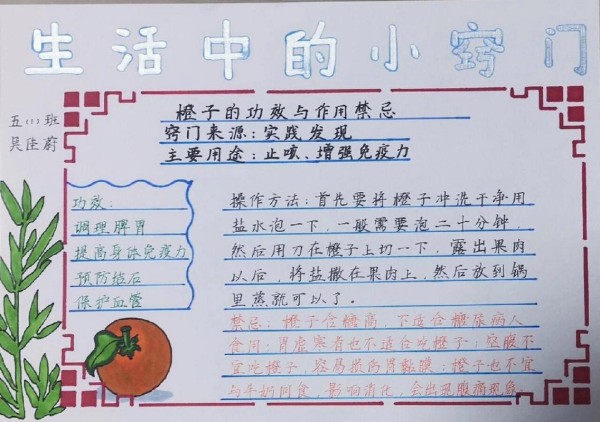 生活中的小窍门
五(1)班
吴佳蔚
橙子的功效与作用禁忌
窍门来源：实践发现
主要用途：止咳、增强免疫力
功效：
调理脾胃
提高身体免疫力
预防结石
保护血管
操作方法：首先要将橙子冲洗干净用
盐水泡一下，一般需要泡二十分钟，
然后用刀在橙子上切一下，露出果肉
以后，将盐撒在果肉上，然后放到锅
里蒸就可以了。
禁忌：橙子含糖高，不适合糖尿病人
食用；胃虚寒者也不适合吃橙子；空腹不
宜吃橙子，容易損伤胃黏膜；橙子也不宜
与牛奶同食，影响消化，会出现腹痛现象。